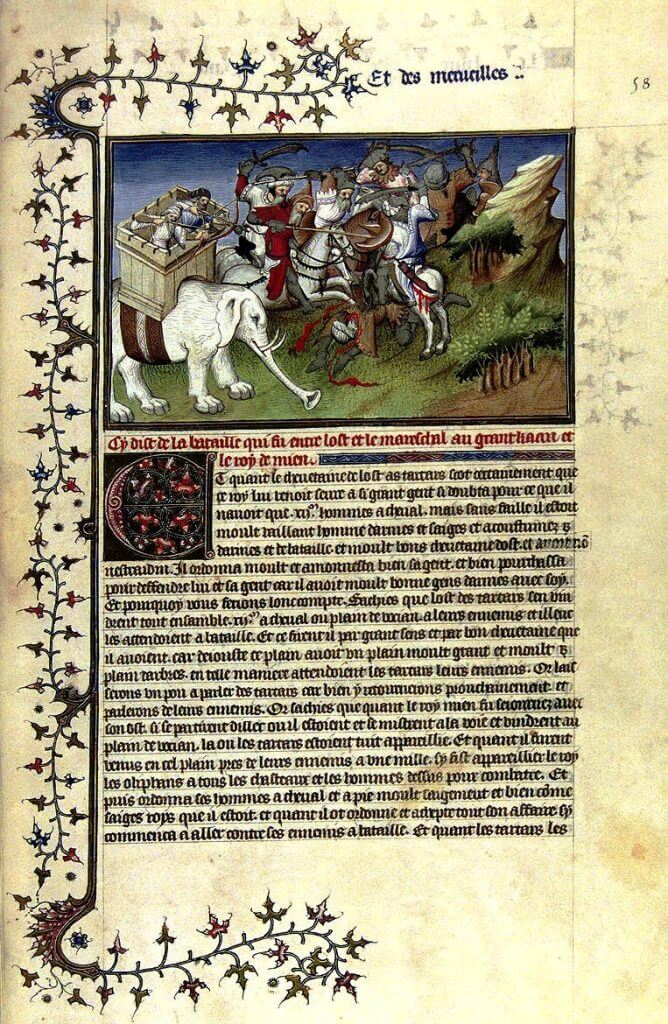 Et des merueilles
58
Cy dist de la bataille qui fu entre lost et le mareschal au grant kaan et
le roy de mien
Et quant le cheuetaine de lost as tartars scot certainement que
ce roy lui venoit seure a si grant gent si doubta pour ce que il
nauoit que .xij.m hommes a cheual. mais sans faille il estoit
moult vaillant homme darmes et saiges et acoustumez
darmes et de bataille. et moult bons cheuetaine dost. et auoit nō
nestraidin. Il ordonna moult et amonnesta bien sa gent. et bien pourchassa
pour deffendre lui et sa gent car il auoit moult bonne gens darmes auec soy.
Et pourquoy vous ferons lonc compte. Sachies que lost des tartars sen vin
drent tout ensemble .xij.m a cheual ou plain de a leurs ennemis et illeuc
les attendoient a bataille. Et ce firent il par grant sens et par bon cheuetaine que
il auoient. car de iouste ce plain auoit vn moult grant et moult
plain darbres. en telle maniere attendoient les tartars leurs ennemis. Or lais
serons vn pou a parler des tartars car bien y retournerons prouchainement. et
parlerons de leurs ennemis. Or sachies que quant le roy mien fu seiournez auec
son ost. si se partirent dillec ou il estoient et se mistrent a la voie et vindrent au
plain de la ou les tartars estoient tuit appareillie. Et quant il furent
venus en cel plain pres de leurs ennemis a vne mille. sy fist appareillier le roy
les oliphans a tous les chasteaux et les hommes dessus pour combatre. Et
puis ordonna ses hommes a cheual et a pie moult saigement et bien cōme
saiges roys que il estoit. et quant il ot ordonne et tout son affaire. sy
commenca a aller contre ses ennemis a bataille. Et quant les tartars les